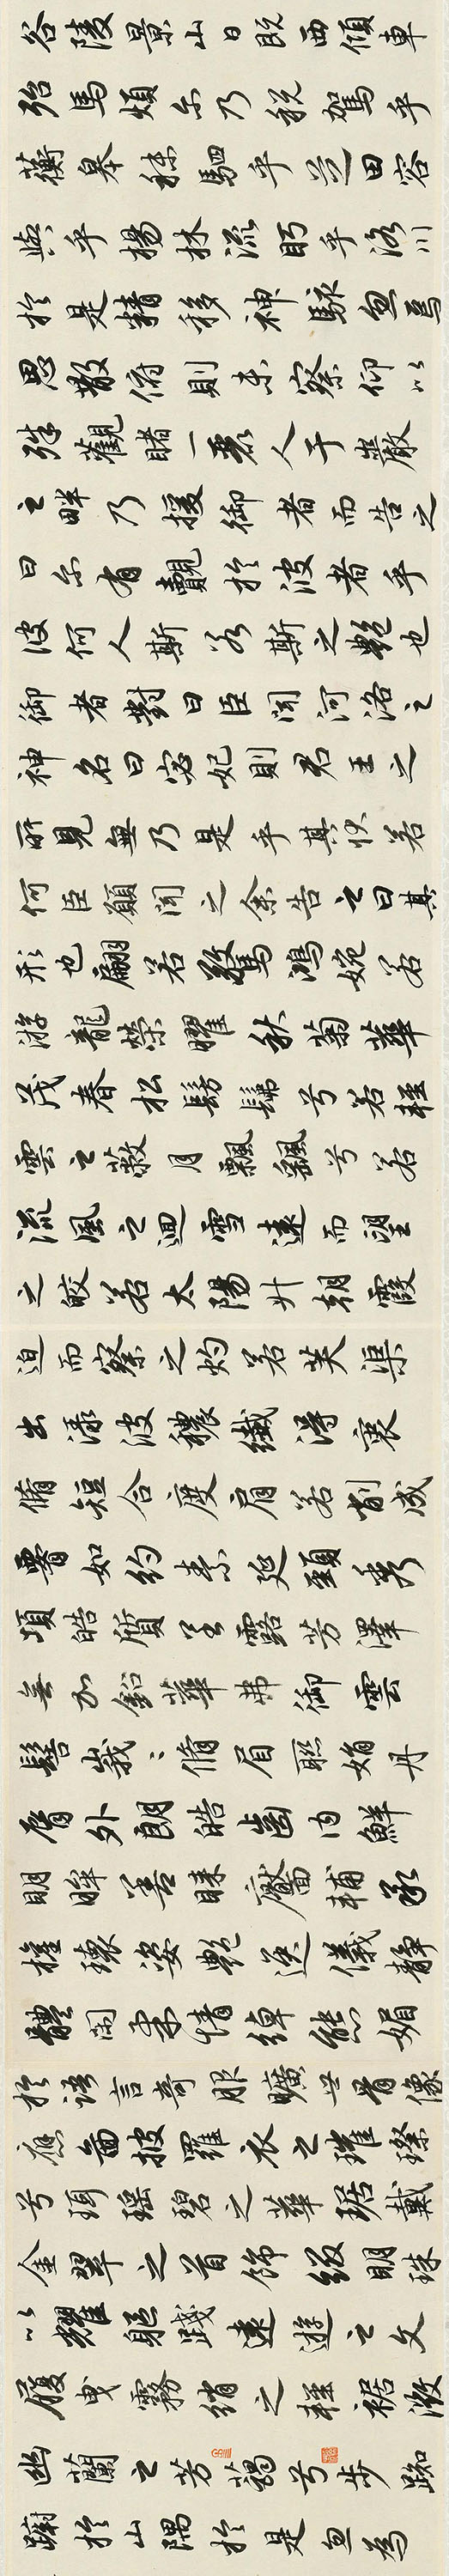 谷陵景山日既西傾車
殆馬煩尓乃税駕乎
蘅皋秣駟乎芝田容
與乎楊林流眄乎洛川
於是精移神駭忽焉
思散俯則未察仰以
殊觀睹一麗人于巖
之畔乃援御者而告之
曰尓有覿於彼者乎
彼何人斯若斯之艷也
御者對曰臣聞河洛之
神名曰宓妃則君王之
所見無乃是乎其狀若
何臣願聞之余告之曰其
形也翩若驚鴻婉若
游龍榮曜秋菊華
茂春松髣髴兮若輕
雲之蔽月飄颻兮若
流風之迴雪遠而望
之皎若太陽升朝霞
迫而察之灼若芙渠
出淥波穠纖得衷
脩短合度肩若削成
腰如約素延頸秀
項皓質呈露芳澤
無加鉛華弗御雲
髻峩〻脩眉聯娟丹
脣外朗皓齒内鮮
明眸善睞靨輔承
權瓌姿艷逸儀靜
體閑柔情綽態媚
於語言奇服曠世骨像
應圖披羅衣之璀璨
兮珥瑶碧之華琚戴
金翠之首飾綴明珠
以耀軀踐遠遊之文
履曳霧綃之輕裾微
幽蘭之芳藹兮步踟
蹰於山隅於是忽焉